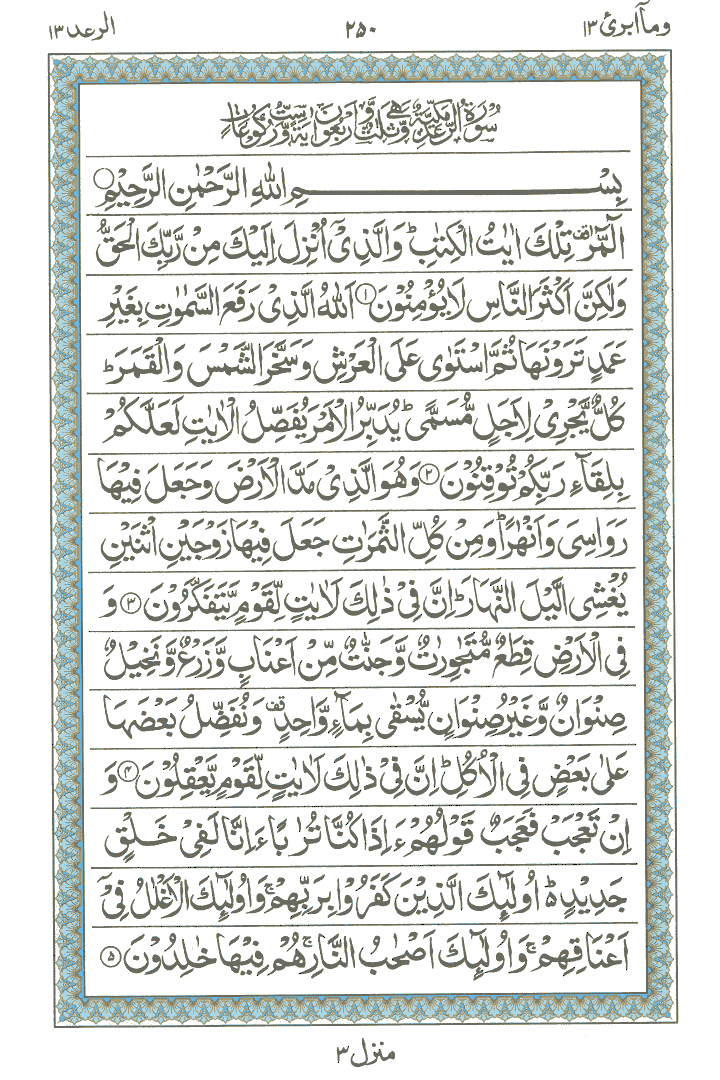 وما أبرئ ١٣
٢٥٠
الرعد ١٣
سُوْرَةُ الرَّعْدِ مَكِّيَّةٌ وَّهِيَ ثَلٰثٌ وَّاَرْبَعُوْنَ اٰيَةً وَّسِتُّ رُكُوْعَاتٍ
بِسْمِ اللّٰهِ الرَّحْمٰنِ الرَّحِيْمِ
الٓمّٓرٰ ۫ تِلْكَ اٰيٰتُ الْكِتٰبِ ؕ وَالَّذِيْۤ اُنْزِلَ اِلَيْكَ مِنْ رَّبِّكَ الْحَقُّ
وَلٰكِنَّ اَكْثَرَ النَّاسِ لَا يُؤْمِنُوْنَ ۝۱ اَللّٰهُ الَّذِيْ رَفَعَ السَّمٰوٰتِ بِغَيْرِ
عَمَدٍ تَرَوْنَهَا ثُمَّ اسْتَوٰى عَلَى الْعَرْشِ وَسَخَّرَ الشَّمْسَ وَالْقَمَرَ ؕ
كُلٌّ يَّجْرِيْ لِاَجَلٍ مُّسَمًّى ؕ يُدَبِّرُ الْاَمْرَ يُفَصِّلُ الْاٰيٰتِ لَعَلَّكُمْ
بِلِقَآءِ رَبِّكُمْ تُوْقِنُوْنَ ۝۲ وَهُوَ الَّذِيْ مَدَّ الْاَرْضَ وَجَعَلَ فِيْهَا
رَوَاسِيَ وَاَنْهٰرًا ؕ وَمِنْ كُلِّ الثَّمَرٰتِ جَعَلَ فِيْهَا زَوْجَيْنِ اثْنَيْنِ
يُغْشِي الَّيْلَ النَّهَارَ ؕ اِنَّ فِيْ ذٰلِكَ لَاٰيٰتٍ لِّقَوْمٍ يَّتَفَكَّرُوْنَ ۝۳ وَ
فِي الْاَرْضِ قِطَعٌ مُّتَجٰوِرٰتٌ وَّجَنّٰتٌ مِّنْ اَعْنَابٍ وَّزَرْعٌ وَّنَخِيْلٌ
صِنْوَانٌ وَّغَيْرُ صِنْوَانٍ يُّسْقٰى بِمَآءٍ وَّاحِدٍ ۫ وَنُفَضِّلُ بَعْضَهَا
عَلٰى بَعْضٍ فِي الْاُكُلِ ؕ اِنَّ فِيْ ذٰلِكَ لَاٰيٰتٍ لِّقَوْمٍ يَّعْقِلُوْنَ ۝۴ وَ
اِنْ تَعْجَبْ فَعَجَبٌ قَوْلُهُمْ ءَاِذَا كُنَّا تُرٰبًا ءَاِنَّا لَفِيْ خَلْقٍ
جَدِيْدٍ ؕ۬ اُولٰٓئِكَ الَّذِيْنَ كَفَرُوْا بِرَبِّهِمْ ۚ وَاُولٰٓئِكَ الْاَغْلٰلُ فِيْۤ
اَعْنَاقِهِمْ ۚ وَاُولٰٓئِكَ اَصْحٰبُ النَّارِ ۚ هُمْ فِيْهَا خٰلِدُوْنَ ۝۵
منزل ٣